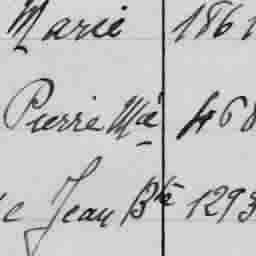 Marie 1861
Pierre Mie 468
e Jean Bte 1293